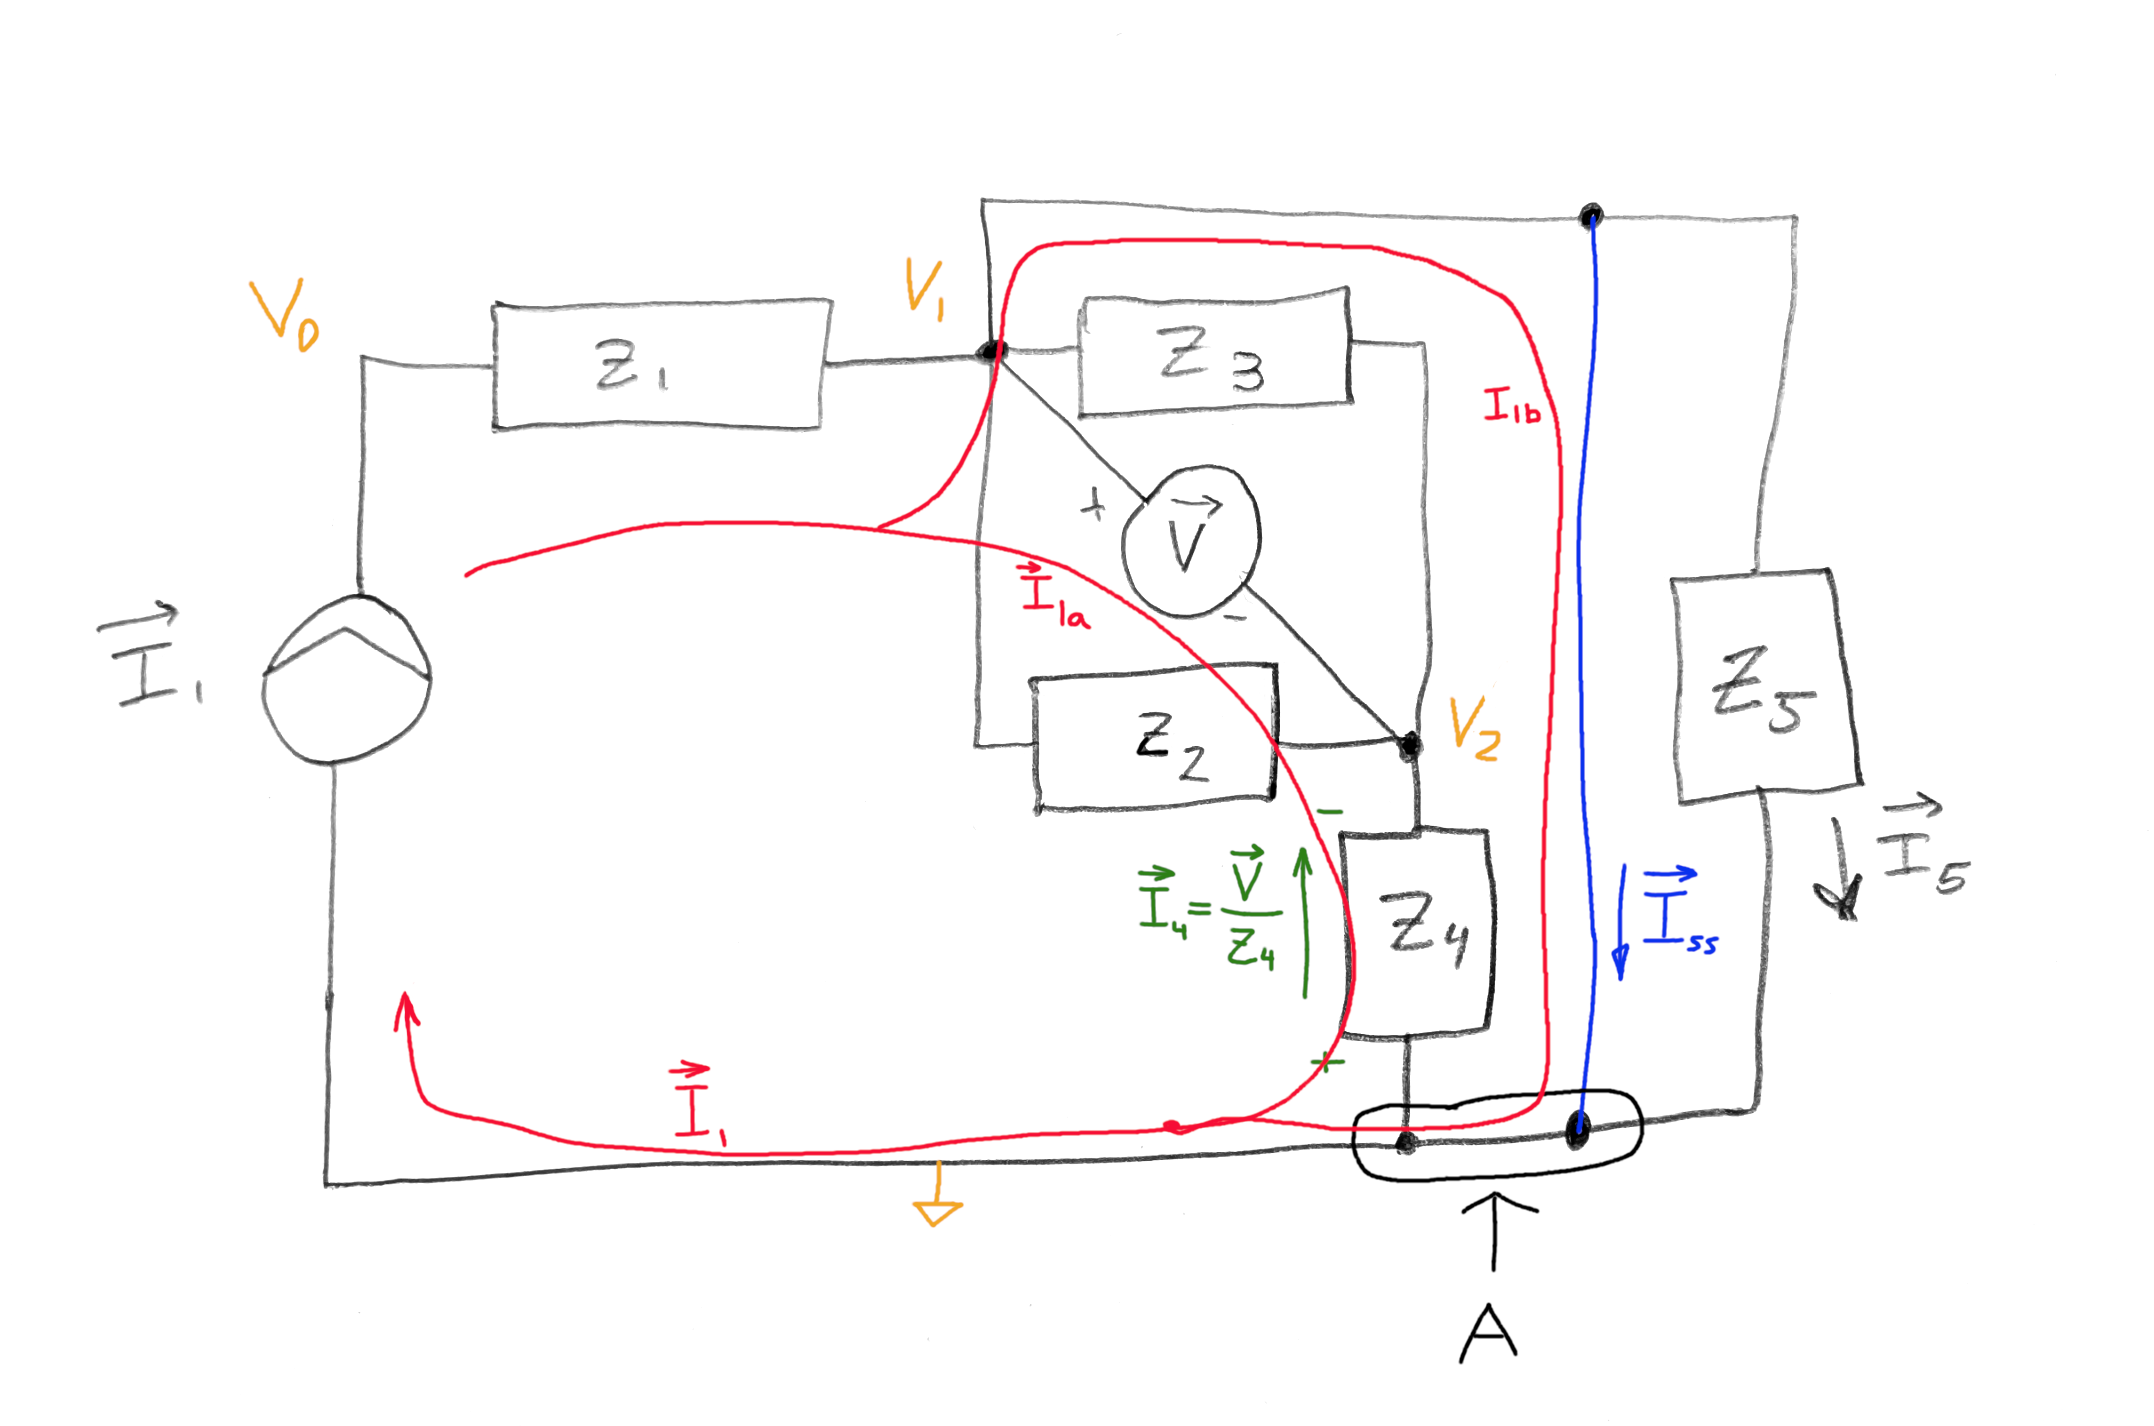 V₀
Z₁
V₁
Z₃
I₁b
+
V
-
I₁a
I₁
Z₂
V₂
Z₅
-
I₄ = V/Z₄
Z₄
Iss
I₅
+
I₁
A